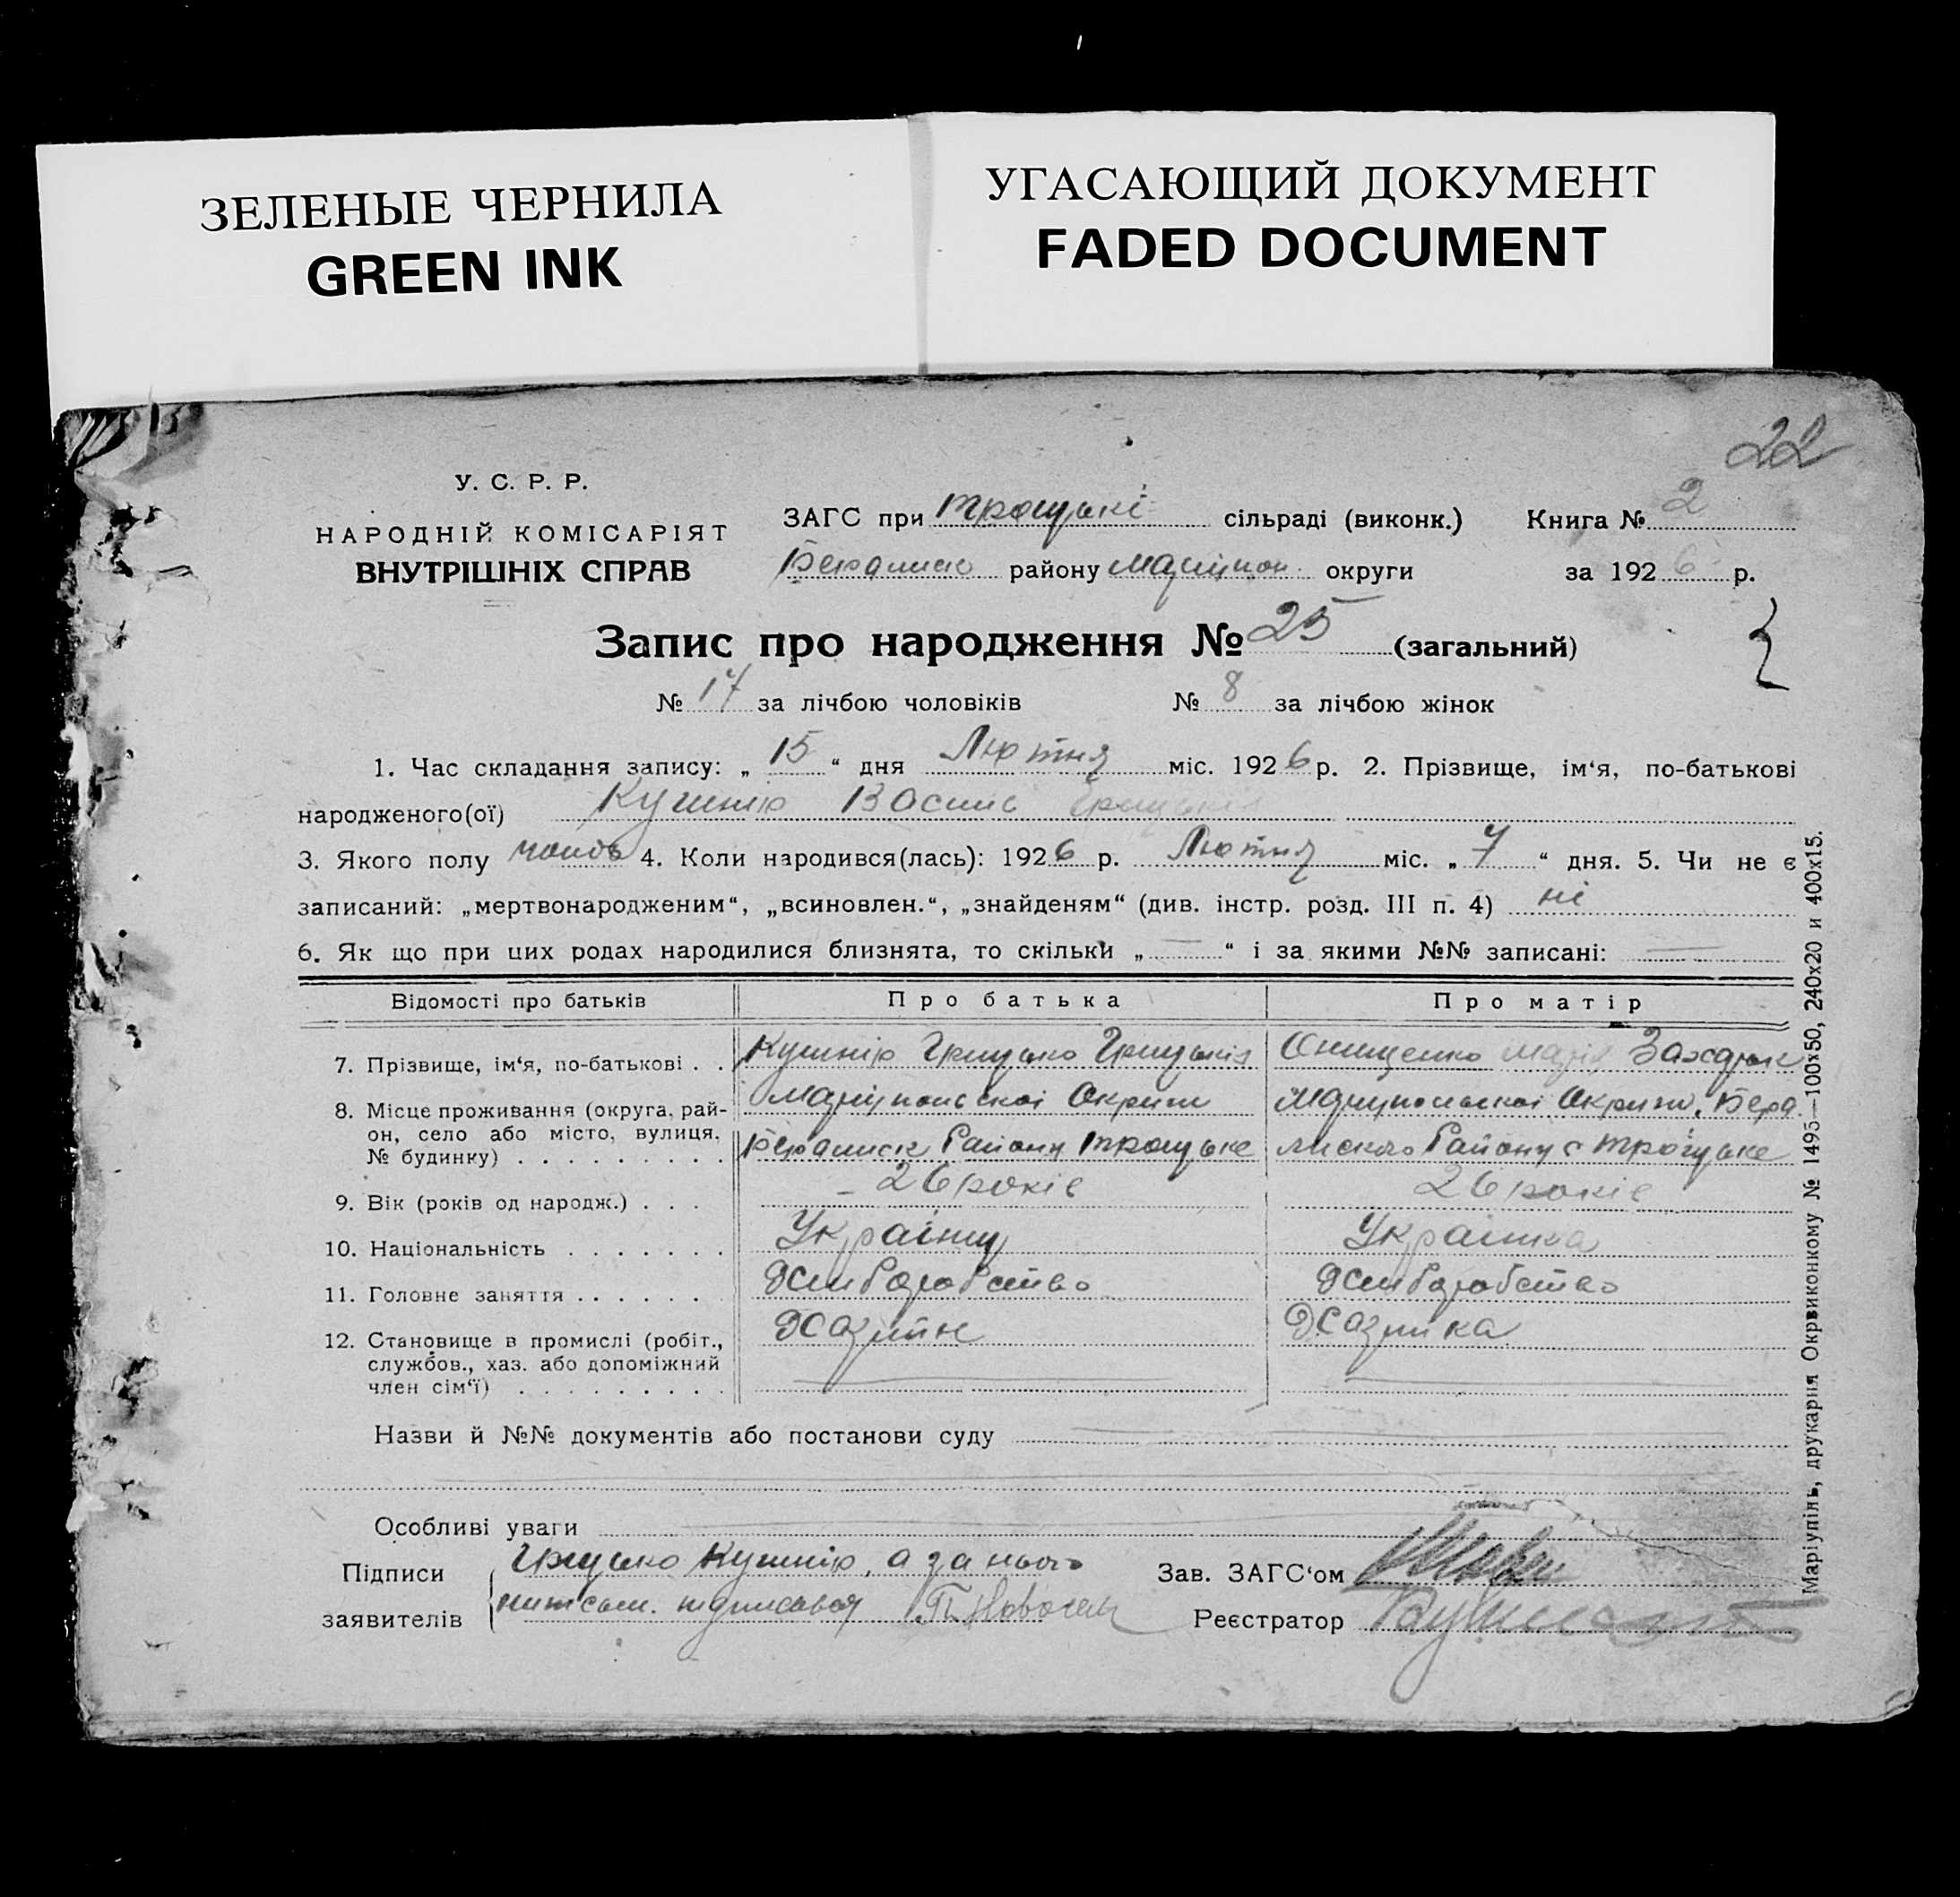 ЗЕЛЕНЫЕ ЧЕРНИЛА
GREEN INK
УГАСАЮЩИЙ ДОКУМЕНТ
FADED DOCUMENT
22
У. С. Р. Р.
НАРОДНІЙ КОМІСАРІЯТ
ВНУТРІШНІХ СПРАВ
ЗАГС при Троцькі сільраді (виконк.) Книга № 2
району Маріупол. округи за 1926 р.
Запис про народження № 25 (загальний)
№ 17 за лічбою чоловіків № 8 за лічбою жінок
1. Час складання запису: „15“ дня Лютня міс. 1926 р. 2. Прізвище, ім‘я, по-батькові
народженого(ої) Кушнір Василь Грицьків
3. Якого полу чолов 4. Коли народився(лась): 1926 р. Лютня міс. „7“ дня. 5. Чи не є
записаний: „мертвонародженим“, „всиновлен.“, „знайденям“ (див. інстр. розд. III п. 4) ні
6. Як що при цих родах народилися близнята, то скільки „ — “ і за якими №№ записані: —
Відомості про батьків Про батька Про матір
7. Прізвище, ім‘я, по-батькові . . Кушнір Грицько Грицьків Онищенко Марія
8. Місце проживання (округа, рай-
он, село або місто, вулиця,
№ будинку) . . . . . . . . .
Маріупольскоі Округи Маріупольскоі Округи,
Району Троцьке Району с Троцьке
9. Вік (років од народж.) . . . 26 років 26 років
10. Національність . . . . . . . Українц Українка
11. Головне заняття . . . . . . Хліборобство Хліборобство
12. Становище в промислі (робіт.,
службов., хаз. або допоміжний
член сім‘ї) . . . . . . . . .
Хазяїн Хазяйка
Назви й №№ документів або постанови суду
Особливі уваги
Підписи
заявителів
Грицько Кушнір, а за нього
підписався
Зав. ЗАГС‘ом
Реєстратор
Маріупіль, друкарня Окрвиконкому № 1495—100х50, 240х20 и 400х15.